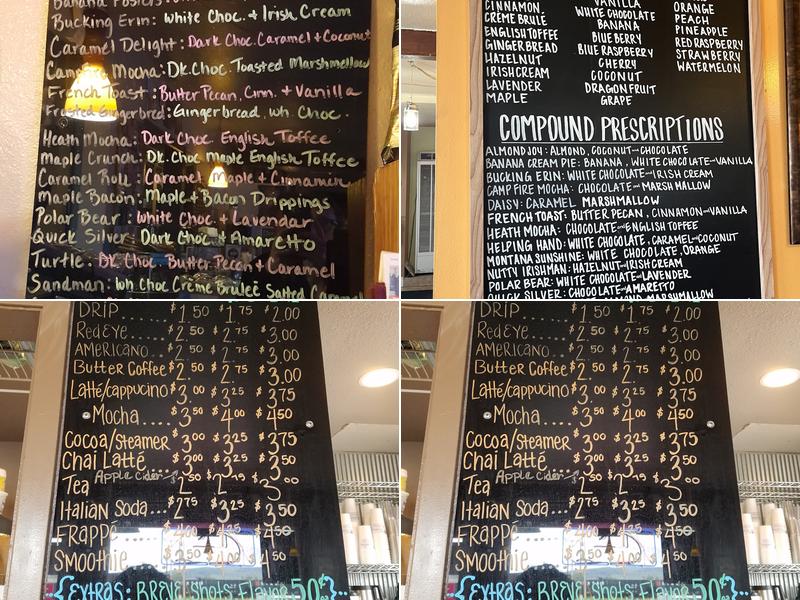 Banana Fosters
Bucking Erin: White Choc. & Irish Cream
Caramel Delight: Dark Choc. Caramel & Coconut
Campfire Mocha: Dk. Choc. Toasted Marshmallow
French Toast: Butter Pecan, Cinn. & Vanilla
Frosted Gingerbred: Gingerbread, Wh. Choc.
Heath Mocha: Dark Choc English Toffee
Maple Crunch: Dk. Choc Maple English Toffee
Caramel Roll: Caramel Maple & Cinnamon
Maple Bacon: Maple & Bacon Drippings
Polar Bear: White Choc. & Lavendar
Quick Silver: Dark Choc. & Amaretto
Turtle: Dk Choc Butter Pecan & Caramel
Sandman: Wh Choc Crème Brulee Salted Caramel
CINNAMON
CRÉME BRULÉ
ENGLISH TOFFEE
GINGERBREAD
HAZELNUT
IRISH CREAM
LAVENDER
MAPLE
VANILLA
WHITE CHOCOLATE
BANANA
BLUE BERRY
BLUE RASPBERRY
CHERRY
COCONUT
DRAGONFRUIT
GRAPE
ORANGE
PEACH
PINEAPPLE
RED RASPBERRY
STRAWBERRY
WATERMELON
COMPOUND PRESCRIPTIONS
ALMOND JOY: ALMOND, COCONUT CHOCOLATE
BANANA CREAM PIE: BANANA, WHITE CHOCOLATE VANILLA
BUCKING ERIN: WHITE CHOCOLATE IRISH CREAM
CAMP FIRE MOCHA: CHOCOLATE MARSHMALLOW
DAISY: CARAMEL MARSHMALLOW
FRENCH TOAST: BUTTER PECAN, CINNAMON VANILLA
HEATH MOCHA: CHOCOLATE ENGLISH TOFFEE
HELPING HAND: WHITE CHOCOLATE, CARAMEL COCONUT
MONTANA SUNSHINE: WHITE CHOCOLATE, ORANGE
NUTTY IRISHMAN: HAZELNUT IRISH CREAM
POLAR BEAR: WHITE CHOCOLATE LAVENDER
QUICK SILVER: CHOCOLATE AMARETTO
MARSHMALLOW
DRIP $1.50 $1.75 $2.00
Red Eye..... $2.50 $2.75 $3.00
Americano... $2.50 $2.75 $3.00
Butter Coffee $2.50 $2.75 $3.00
Latté/cappucino $3.00 $3.25 $3.75
Mocha.... $3.50 $4.00 $4.50
Cocoa/Steamer $3.00 $3.25 $3.75
Chai Latté... $3.00 $3.25 $3.50
Apple Cider
Tea
Italian Soda.. $2.75 $3.25 $3.50
Frappé
Smoothie
{Extras: Breve Shots Flavor 50¢}
DRIP $1.50 $1.75 $2.00
Red Eye..... $2.50 $2.75 $3.00
Americano... $2.50 $2.75 $3.00
Butter Coffee $2.50 $2.75 $3.00
Latté/cappucino $3.00 $3.25 $3.75
Mocha.... $3.50 $4.00 $4.50
Cocoa/Steamer $3.00 $3.25 $3.75
Chai Latté... $3.00 $3.25 $3.50
Apple Cider
Tea
Italian Soda.. $2.75 $3.25 $3.50
Frappé
Smoothie
{Extras: Breve Shots Flavor 50¢}